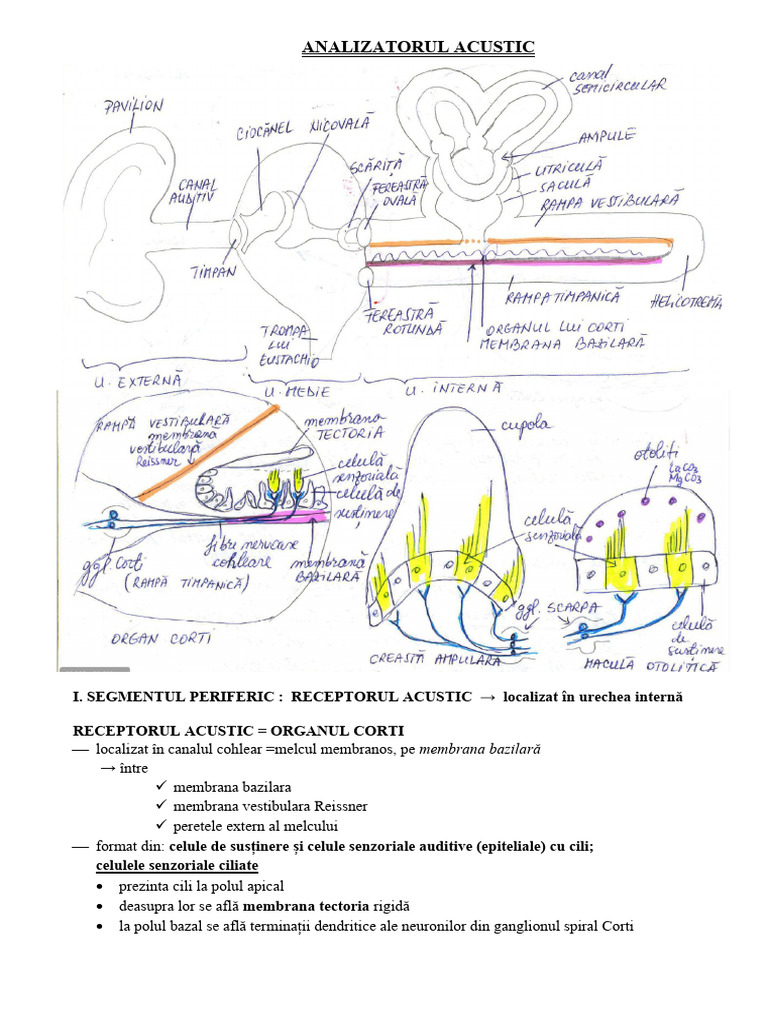 ANALIZATORUL ACUSTIC
PAVILION
CIOCĂNEL NICOVALĂ
canal
SEMICIRCULAR
AMPULE
SCĂRIȚĂ
FEREASTRĂ
OVALĂ
UTRICULĂ
SACULĂ
RAMPA VESTIBULARĂ
CANAL
AUDITIV
TIMPAN
RAMPA TIMPANICĂ
HELICOTREMA
FEREASTRĂ
ROTUNDĂ
ORGANUL LUI CORTI
MEMBRANA BAZILARĂ
TROMPA
LUI
EUSTACHIO
U. EXTERNĂ
U. MEDIE
U. INTERNĂ
RAMPĂ VESTIBULARĂ
membrană
vestibulară
Reissner
membrana
TECTORIA
celulă
senzorială
celulă de
susținere
ggl. Corti
fibre nervoase
cohleare
membrană
BAZILARĂ
(RAMPĂ TIMPANICĂ)
ORGAN CORTI
cupola
otoliti
CaCO3
MgCO3
celulă
senzorială
ggl. SCARPA
celulă
de
susținere
CREASTĂ AMPULARA
MACULĂ OTOLITICĂ
I. SEGMENTUL PERIFERIC : RECEPTORUL ACUSTIC → localizat în urechea internă
RECEPTORUL ACUSTIC = ORGANUL CORTI
— localizat în canalul cohlear =melcul membranos, pe membrana bazilară
→ între
✓ membrana bazilara
✓ membrana vestibulara Reissner
✓ peretele extern al melcului
— format din: celule de susținere și celule senzoriale auditive (epiteliale) cu cili;
celulele senzoriale ciliate
• prezinta cili la polul apical
• deasupra lor se află membrana tectoria rigidă
• la polul bazal se află terminații dendritice ale neuronilor din ganglionul spiral Corti